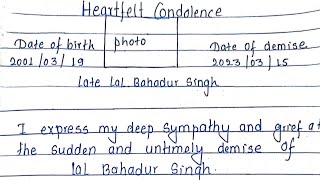 Heartfelt Condolence
Date of birth photo Date of demise
2001/03/19 2023/03/15
Late Lal Bahadur Singh
I express my deep sympathy and grief at
the sudden and untimely demise of
lal Bahadur Singh.